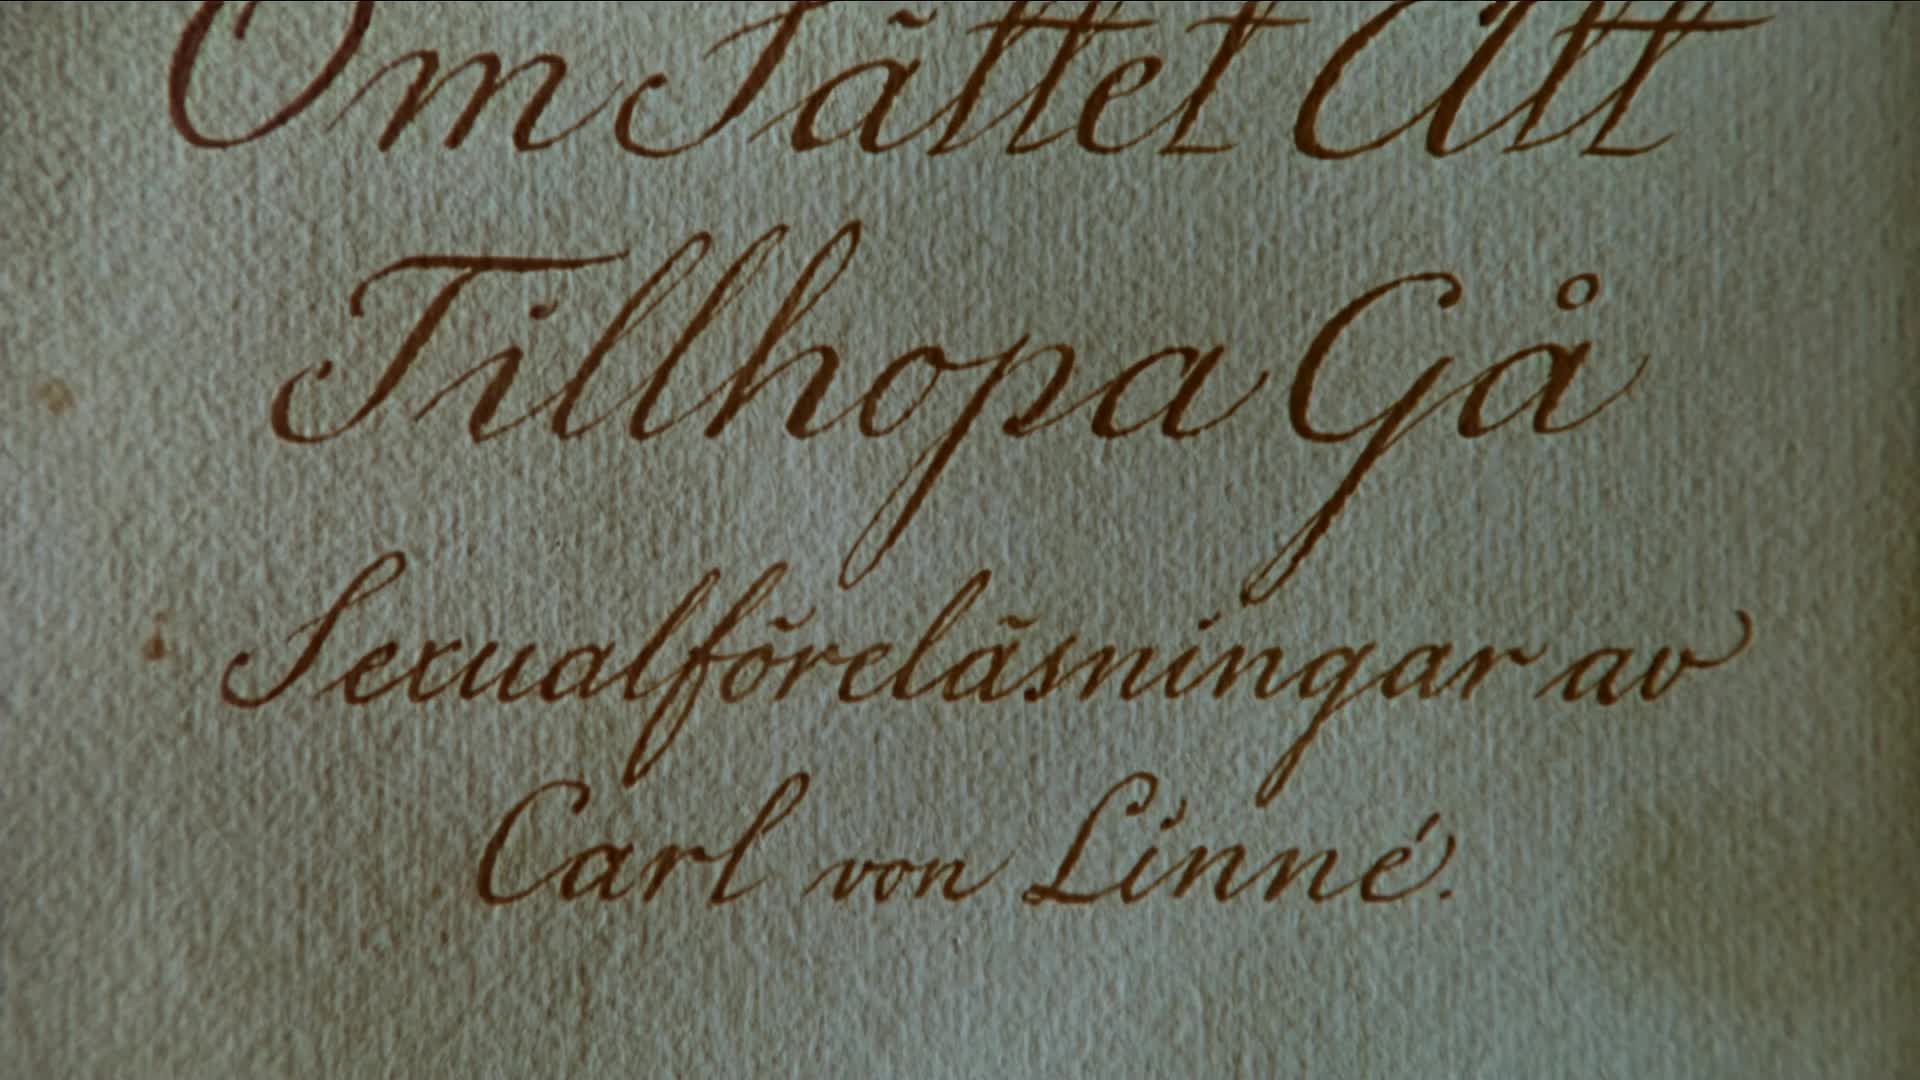 Om Sättet Att
Tillhopa Gå
Sexualföreläsningar av
Carl von Linné.